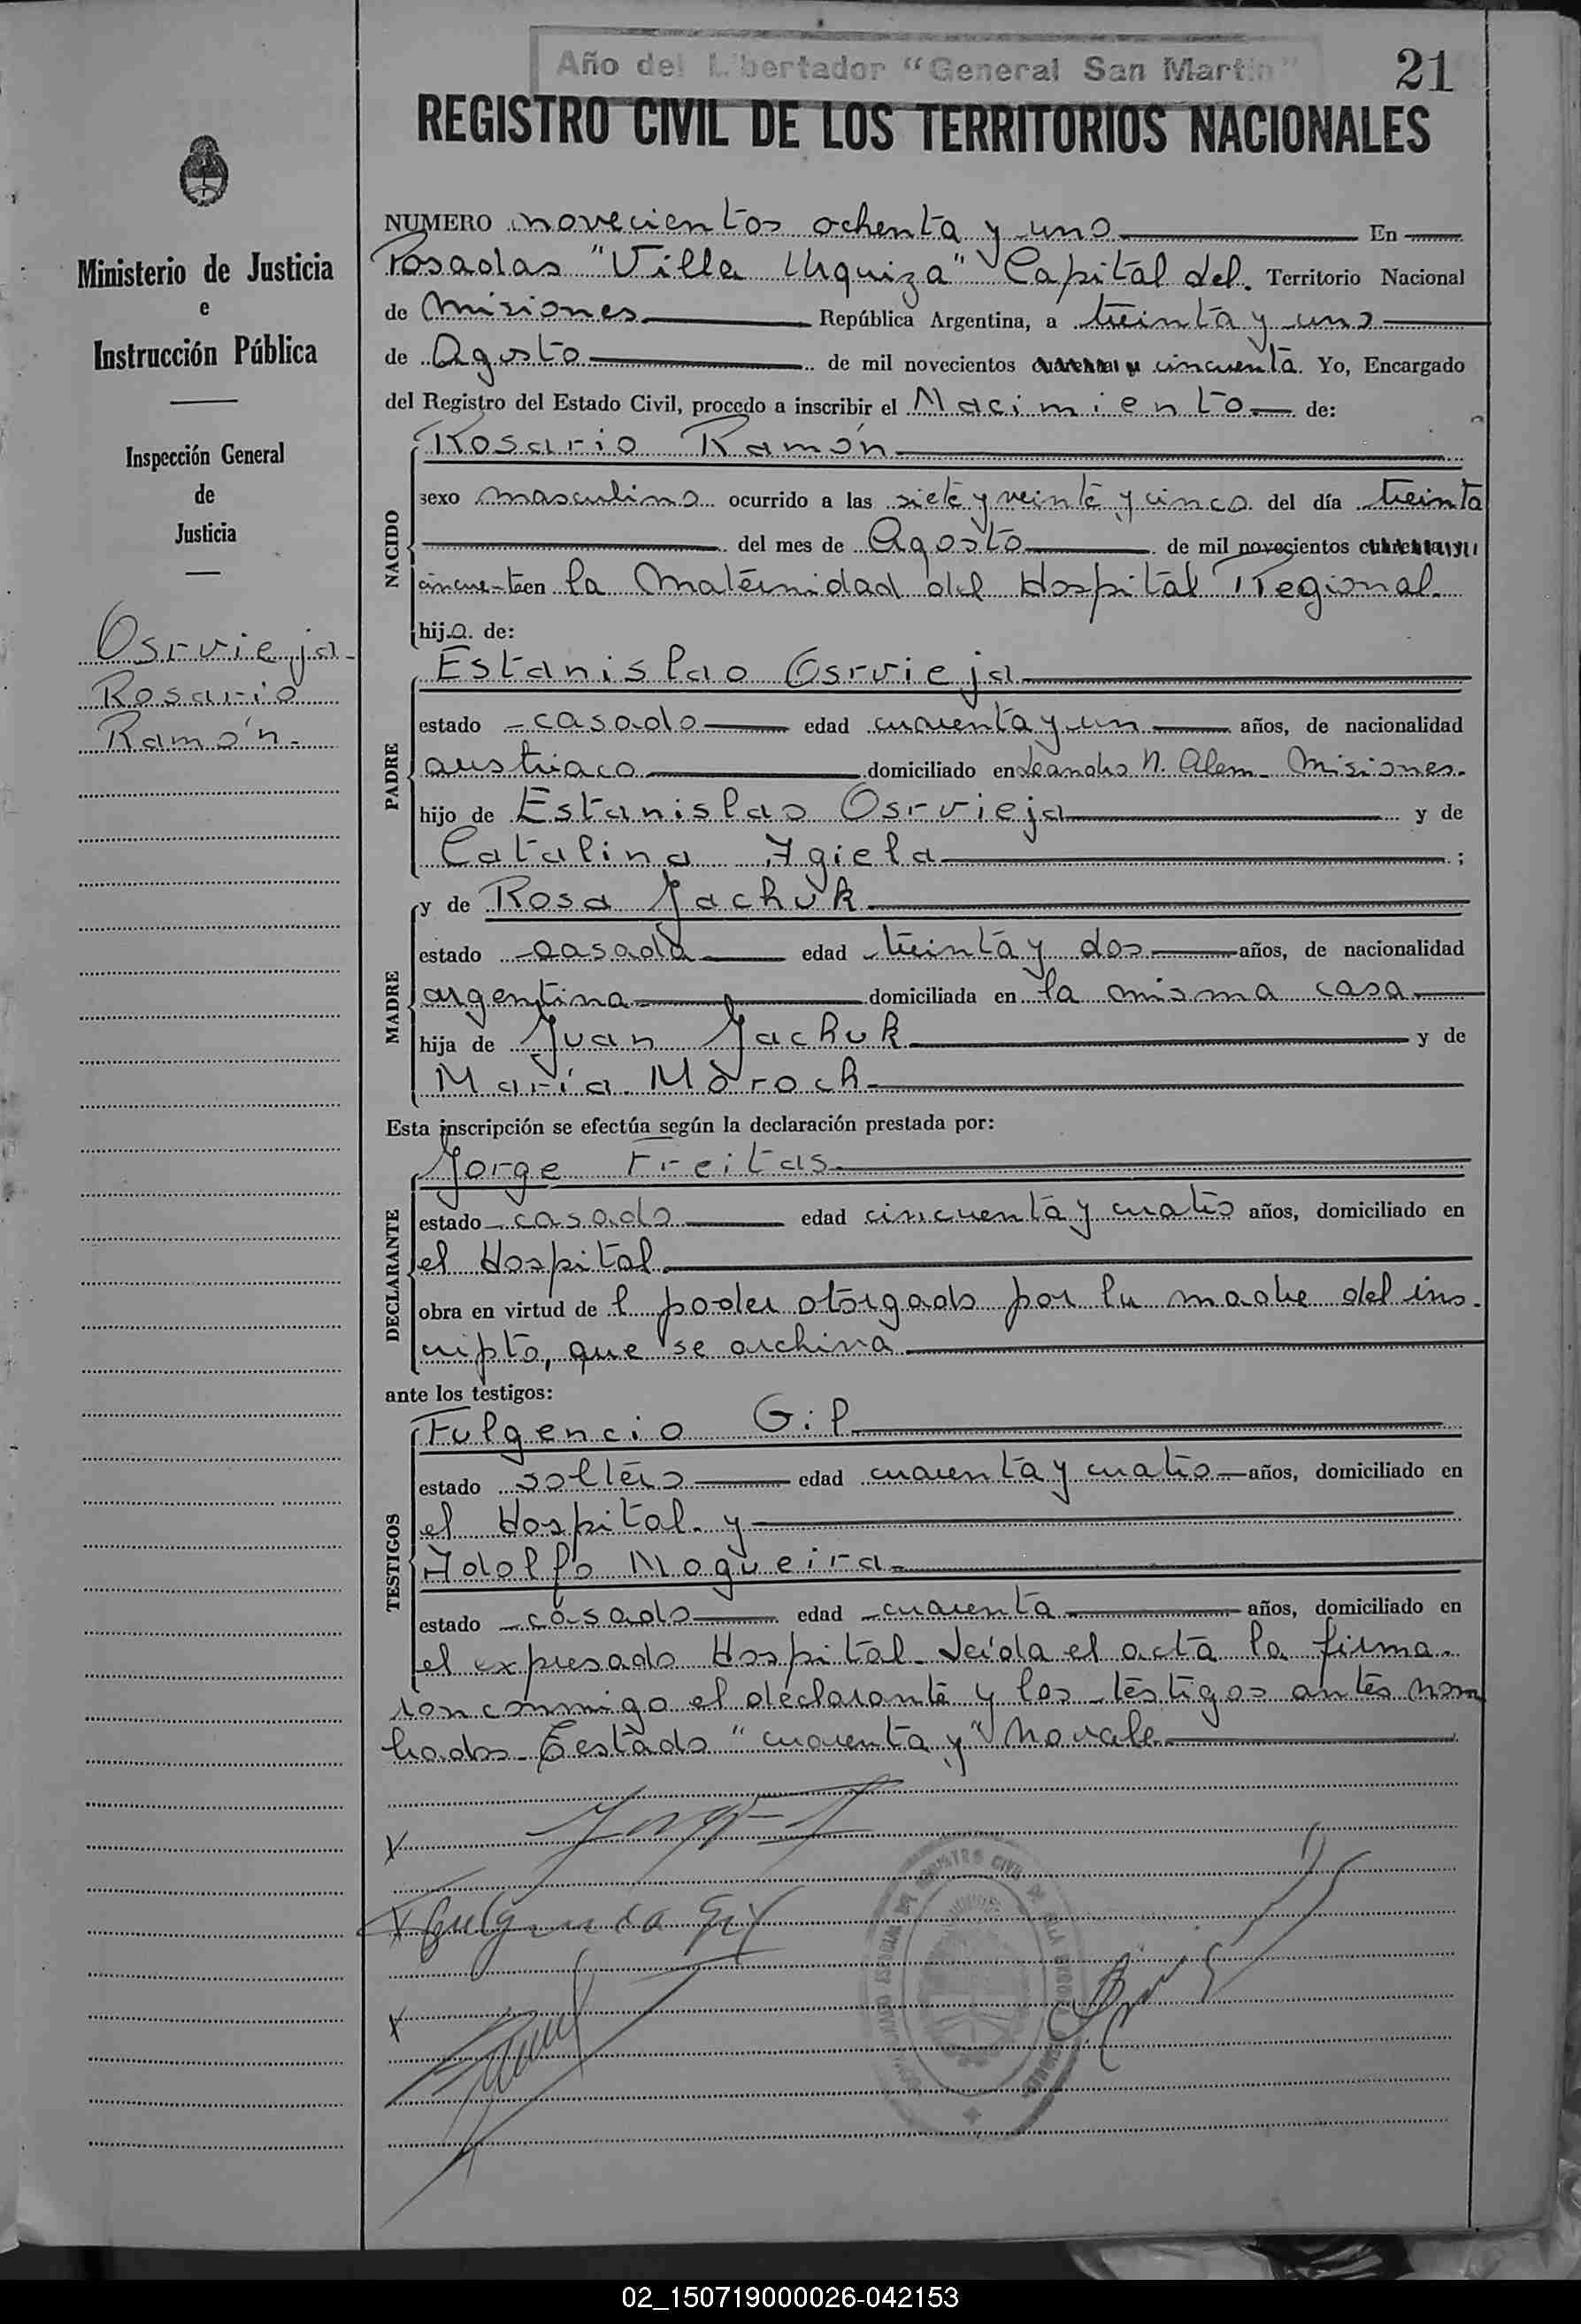 Año del Libertador "General San Martín"
21
REGISTRO CIVIL DE LOS TERRITORIOS NACIONALES
Ministerio de Justicia
e
Instrucción Pública
Inspección General
de
Justicia
Osrvieja
Rosario
Ramón.
NUMERO novecientos ochenta y uno En
Posadas "Villa Urquiza" Capital del. Territorio Nacional
de Misiones República Argentina, a treinta y uno
de Agosto de mil novecientos cuarenta y cincuenta. Yo, Encargado
del Registro del Estado Civil, procedo a inscribir el Nacimiento de:
Rosario Ramón
NACIDO
sexo masculino ocurrido a las siete y veinte y cinco del día treinta
del mes de Agosto de mil novecientos cuarenta y
cincuenta en la Maternidad del Hospital Regional.
hijo. de:
PADRE
Estanislao Osrvieja
estado casado edad cuarenta y un años, de nacionalidad
austriaco domiciliado en Leandro N. Alem - Misiones.
hijo de Estanislao Osrvieja y de
Catalina Agiela ;
MADRE
y de Rosa Jachuk
estado casada edad treinta y dos años, de nacionalidad
argentina domiciliada en la misma casa
hija de Juan Jachuk y de
María Moroch
Esta inscripción se efectúa según la declaración prestada por:
DECLARANTE
Jorge Freitas
estado casado edad cincuenta y cuatro años, domiciliado en
el Hospital
obra en virtud de l poder otorgado por la madre del ins-
cripto, que se archiva
ante los testigos:
TESTIGOS
Fulgencio Gil
estado soltero edad cuarenta y cuatro años, domiciliado en
el Hospital. y
Adolfo Nogueira
estado casado edad cuarenta años, domiciliado en
el expresado Hospital. Leída el acta la firma-
ron conmigo el declarante y los testigos antes nom
brados. Testado "cuarenta y" No vale
X
X Fulgencio Gil
X
REGISTRO CIVIL
02_150719000026-042153